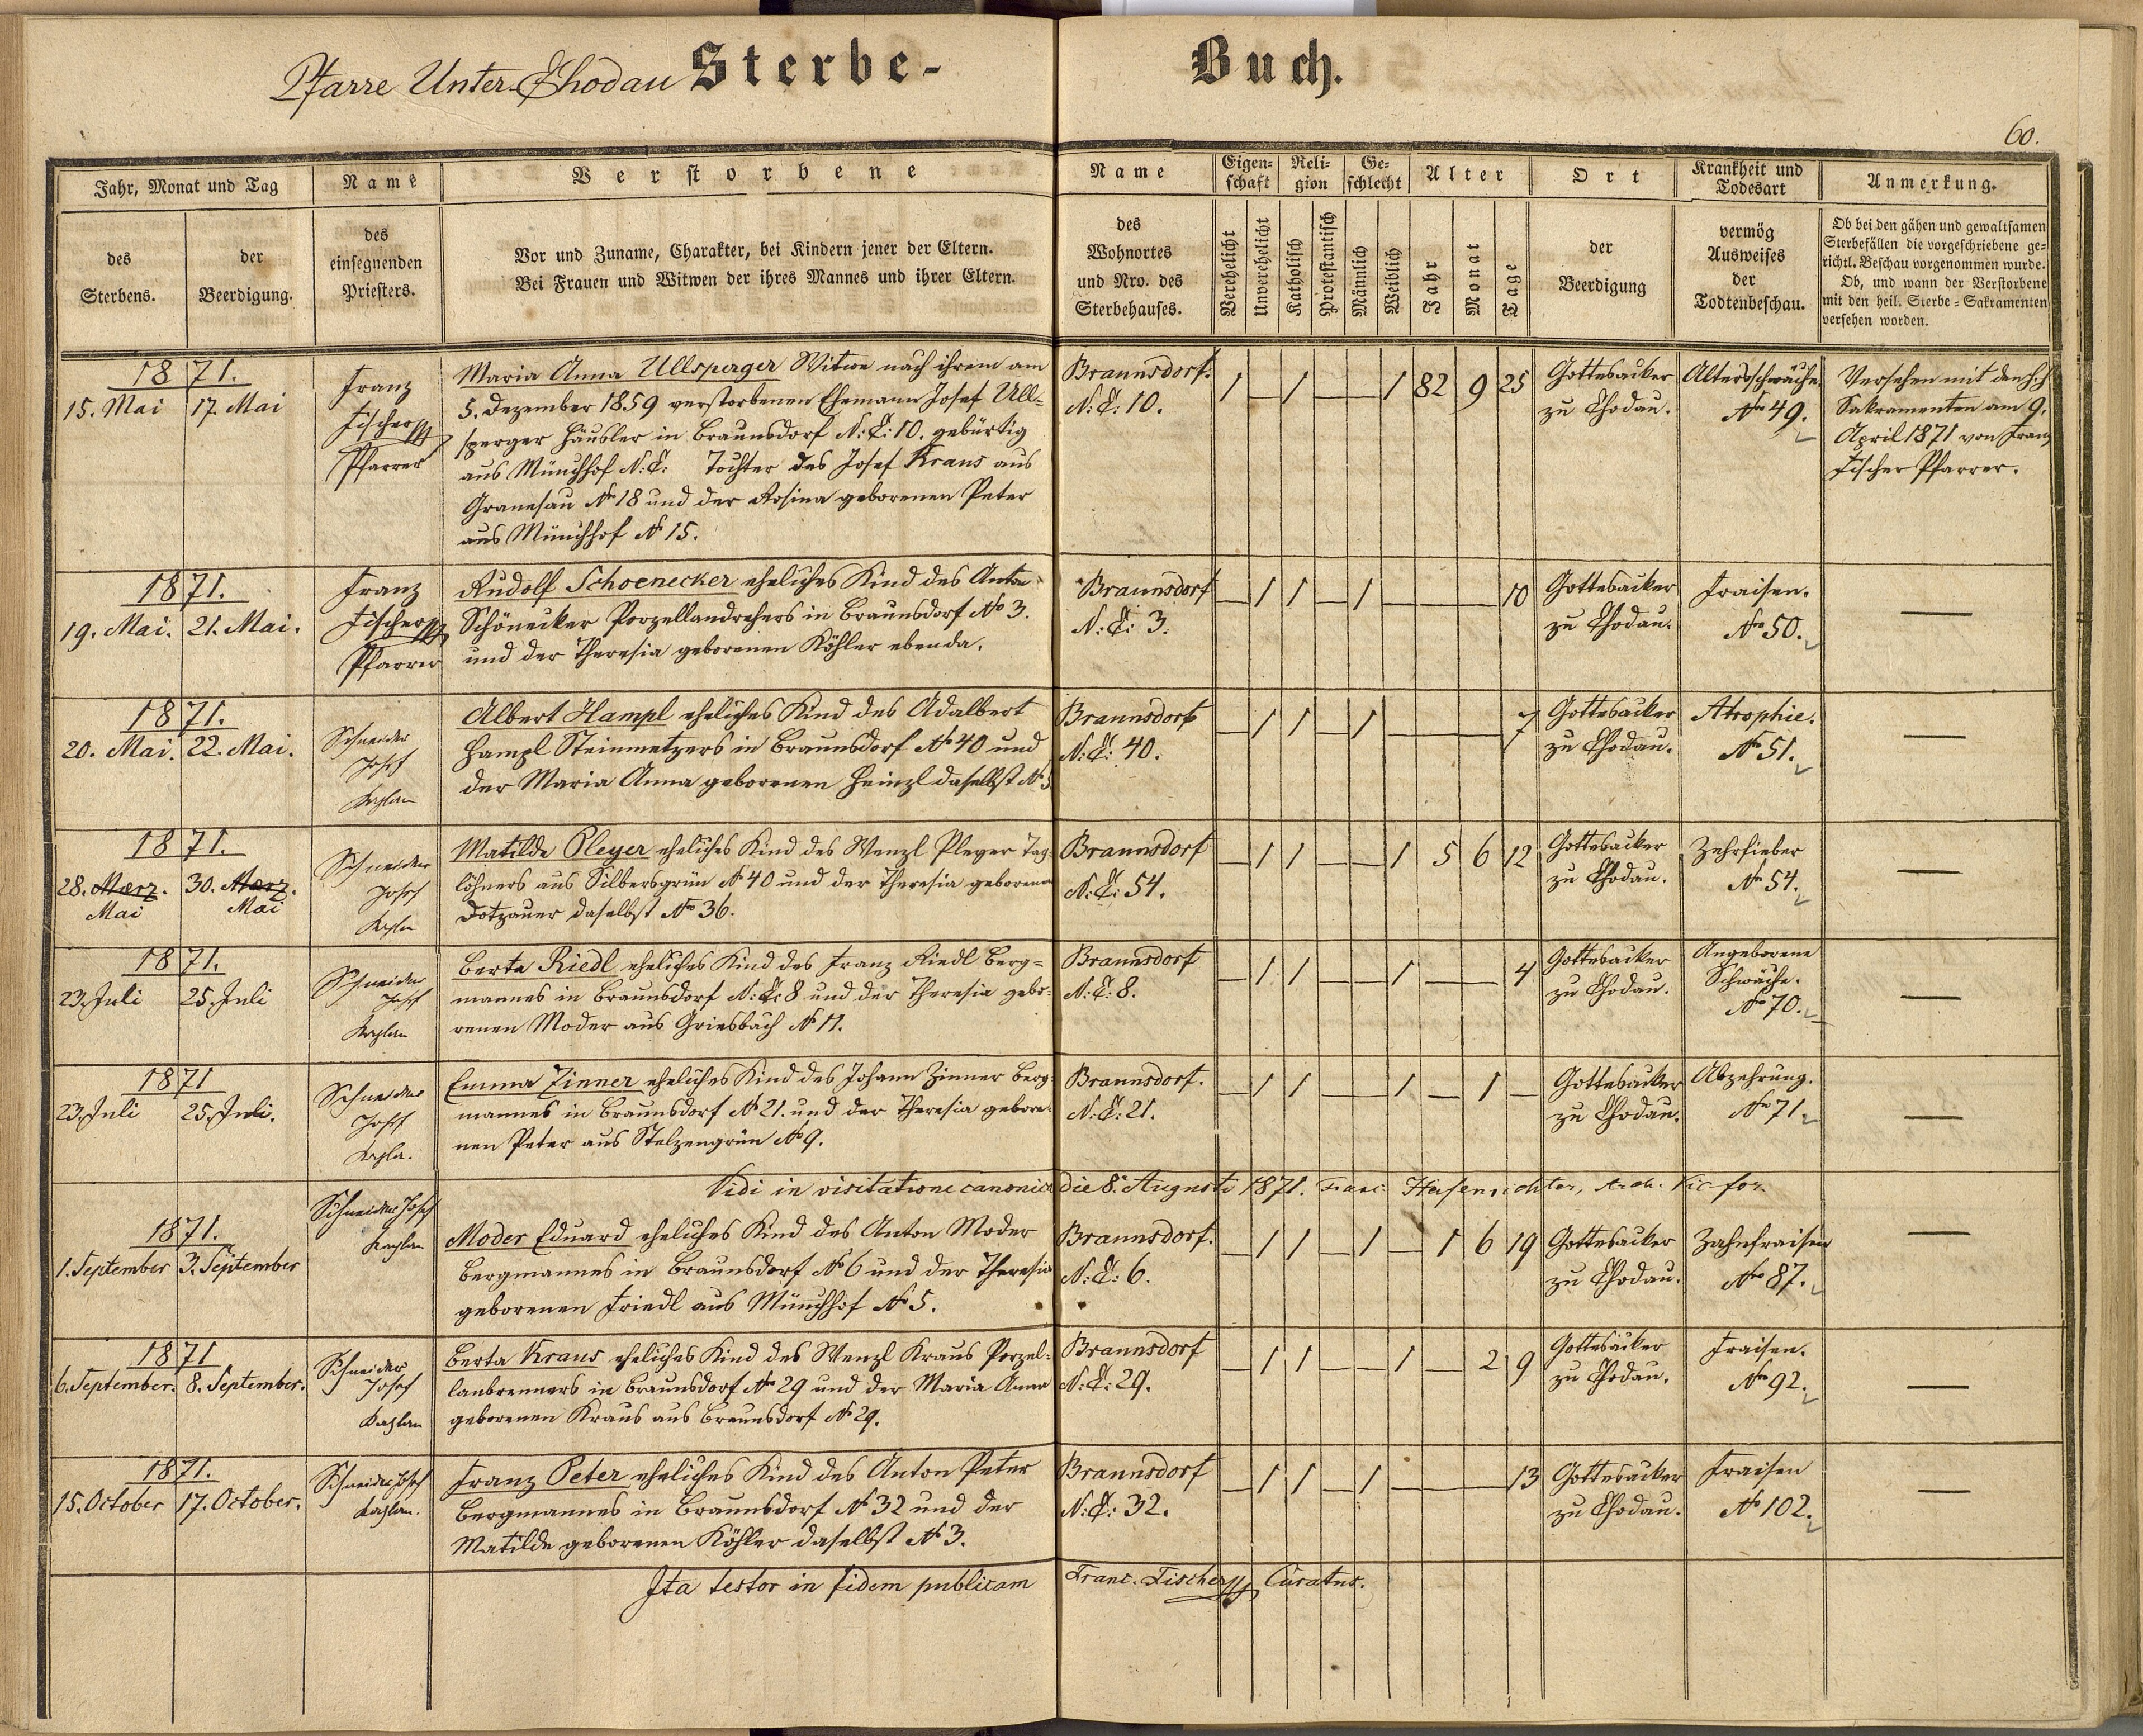 Pfarre Unter-Chodau Sterbe- Buch.
60.
Jahr, Monat und Tag
des Sterbens.
der Beerdigung.
Name
des einsegnenden Priesters.
Verstorbene
Vor und Zuname, Charakter, bei Kindern jener der Eltern.
Bei Frauen und Witwen der ihres Mannes und ihrer Eltern.
Name
des
Wohnortes
und Nro. des
Sterbehauses.
Eigenschaft
Verehelicht
Unverehelicht
Religion
Katholisch
Protestantisch
Geschlecht
Männlich
Weiblich
Alter
Jahr
Monat
Tage
Ort
der
Beerdigung
Krankheit und
Todesart
vermög
Ausweises
der
Todtenbeschau.
Anmerkung.
Ob bei den gähen und gewaltsamen
Sterbefällen die vorgeschriebene ge-
richtl. Beschau vorgenommen wurde.
Ob, und wann der Verstorbene
mit den heil. Sterbe-Sakramenten
versehen worden.
1871.
15. Mai 17. Mai
Franz
Fischer
Pfarrer
Maria Anna Ullsperger Witwe nach ihrem am
5. Dezember 1859 verstorbenen Ehemann Josef Ull-
sperger Häusler in Braunsdorf N:C: 10. gebürtig
aus Münchhof N:C: Tochter des Josef Kraus aus
Granesau No 18 und der Rosina geborenen Peter
aus Münchhof No 15.
Braunsdorf.
N:C: 10.
1 — 1 — — 1 82 9 25
Gottesacker
zu Chodau.
Altersschwäche.
Nro 49.
Versehen mit den h.h.
Sakramenten am 9.
April 1871 von Franz
Fischer Pfarrer.
1871.
19. Mai. 21. Mai.
Franz
Fischer
Pfarrer
Rudolf Schoenecker eheliches Kind des Anton
Schönecker Porzellandrehers in Braunsdorf No 3.
und der Theresia geborenen Köhler ebenda.
Braunsdorf
N:C: 3.
— 1 1 — 1 — — — 10
Gottesacker
zu Chodau.
Fraisen.
Nro 50.
—
1871.
20. Mai. 22. Mai.
Schneider
Josef
Kaplan
Albert Hampl eheliches Kind des Adalbert
Hampl Steinmetzers in Braunsdorf No 40 und
der Maria Anna geborenen Heinzl daselbst No 5
Braunsdorf
N:C: 40.
— 1 1 — 1 — — — 7
Gottesacker
zu Chodau.
Atrophie.
Nro 51.
—
1871.
28. März. 30. März.
Mai Mai
Schneider
Josef
Kaplan
Matilde Pleyer eheliches Kind des Wenzl Pleyer Tag-
löhners aus Silbersgrün No 40 und der Theresia geborenen
Dotzauer daselbst No 36.
Braunsdorf
N:C: 54.
— 1 1 — — 1 5 6 12
Gottesacker
zu Chodau.
Zehrfieber
Nro 54.
—
1871.
23. Juli 25. Juli
Schneider
Josef
Kaplan
Berta Riedl eheliches Kind des Franz Riedl Berg-
mannes in Braunsdorf N:C: 8 und der Theresia gebo-
renen Moder aus Griesbach No 11.
Braunsdorf
N:C: 8.
— 1 1 — — 1 — — 4
Gottesacker
zu Chodau.
Angeborene
Schwäche.
Nro 70.
—
1871
23. Juli 25. Juli.
Schneider
Josef
Kapla.
Emma Zinner eheliches Kind des Johann Zinner Berg-
mannes in Braunsdorf No 21. und der Theresia gebore-
nen Peter aus Stelzengrün No 9.
Braunsdorf.
N:C: 21.
— 1 1 — — 1 — 1 —
Gottesacker
zu Chodau.
Abzehrung.
Nro 71.
—
Vidi in visitatione canonica die 8. Augusti 1871. Franc. Hasenrichter, Arch. Vic. for.
1871.
1. September 3. September
Schneider Josef
Kaplan
Moder Eduard eheliches Kind des Anton Moder
Bergmannes in Braunsdorf No 6 und der Theresia
geborenen Friedl aus Münchhof No 5.
Braunsdorf.
N:C: 6.
— 1 1 — 1 — 1 6 19
Gottesacker
zu Chodau.
Zahnfraisen
Nro 87.
—
1871
6. September. 8. September.
Schneider
Josef
Kaplan
Berta Kraus eheliches Kind des Wenzl Kraus Porzel-
lanbrenners in Braunsdorf No 29 und der Maria Anna
geborenen Kraus aus Braunsdorf No 29.
Braunsdorf
N:C: 29.
— 1 1 — — 1 — 2 9
Gottesacker
zu Chodau.
Fraisen.
Nro 92.
—
1871.
15. October 17. October.
Schneider Josef
Kaplan.
Franz Peter eheliches Kind des Anton Peter
Bergmannes in Braunsdorf No 32 und der
Matilde geborenen Köhler daselbst No 3.
Braunsdorf
N:C: 32.
— 1 1 — 1 — — — 13
Gottesacker
zu Chodau.
Fraisen
No 102.
—
Ita testor in fidem publicam Franc. Fischer Curatus.